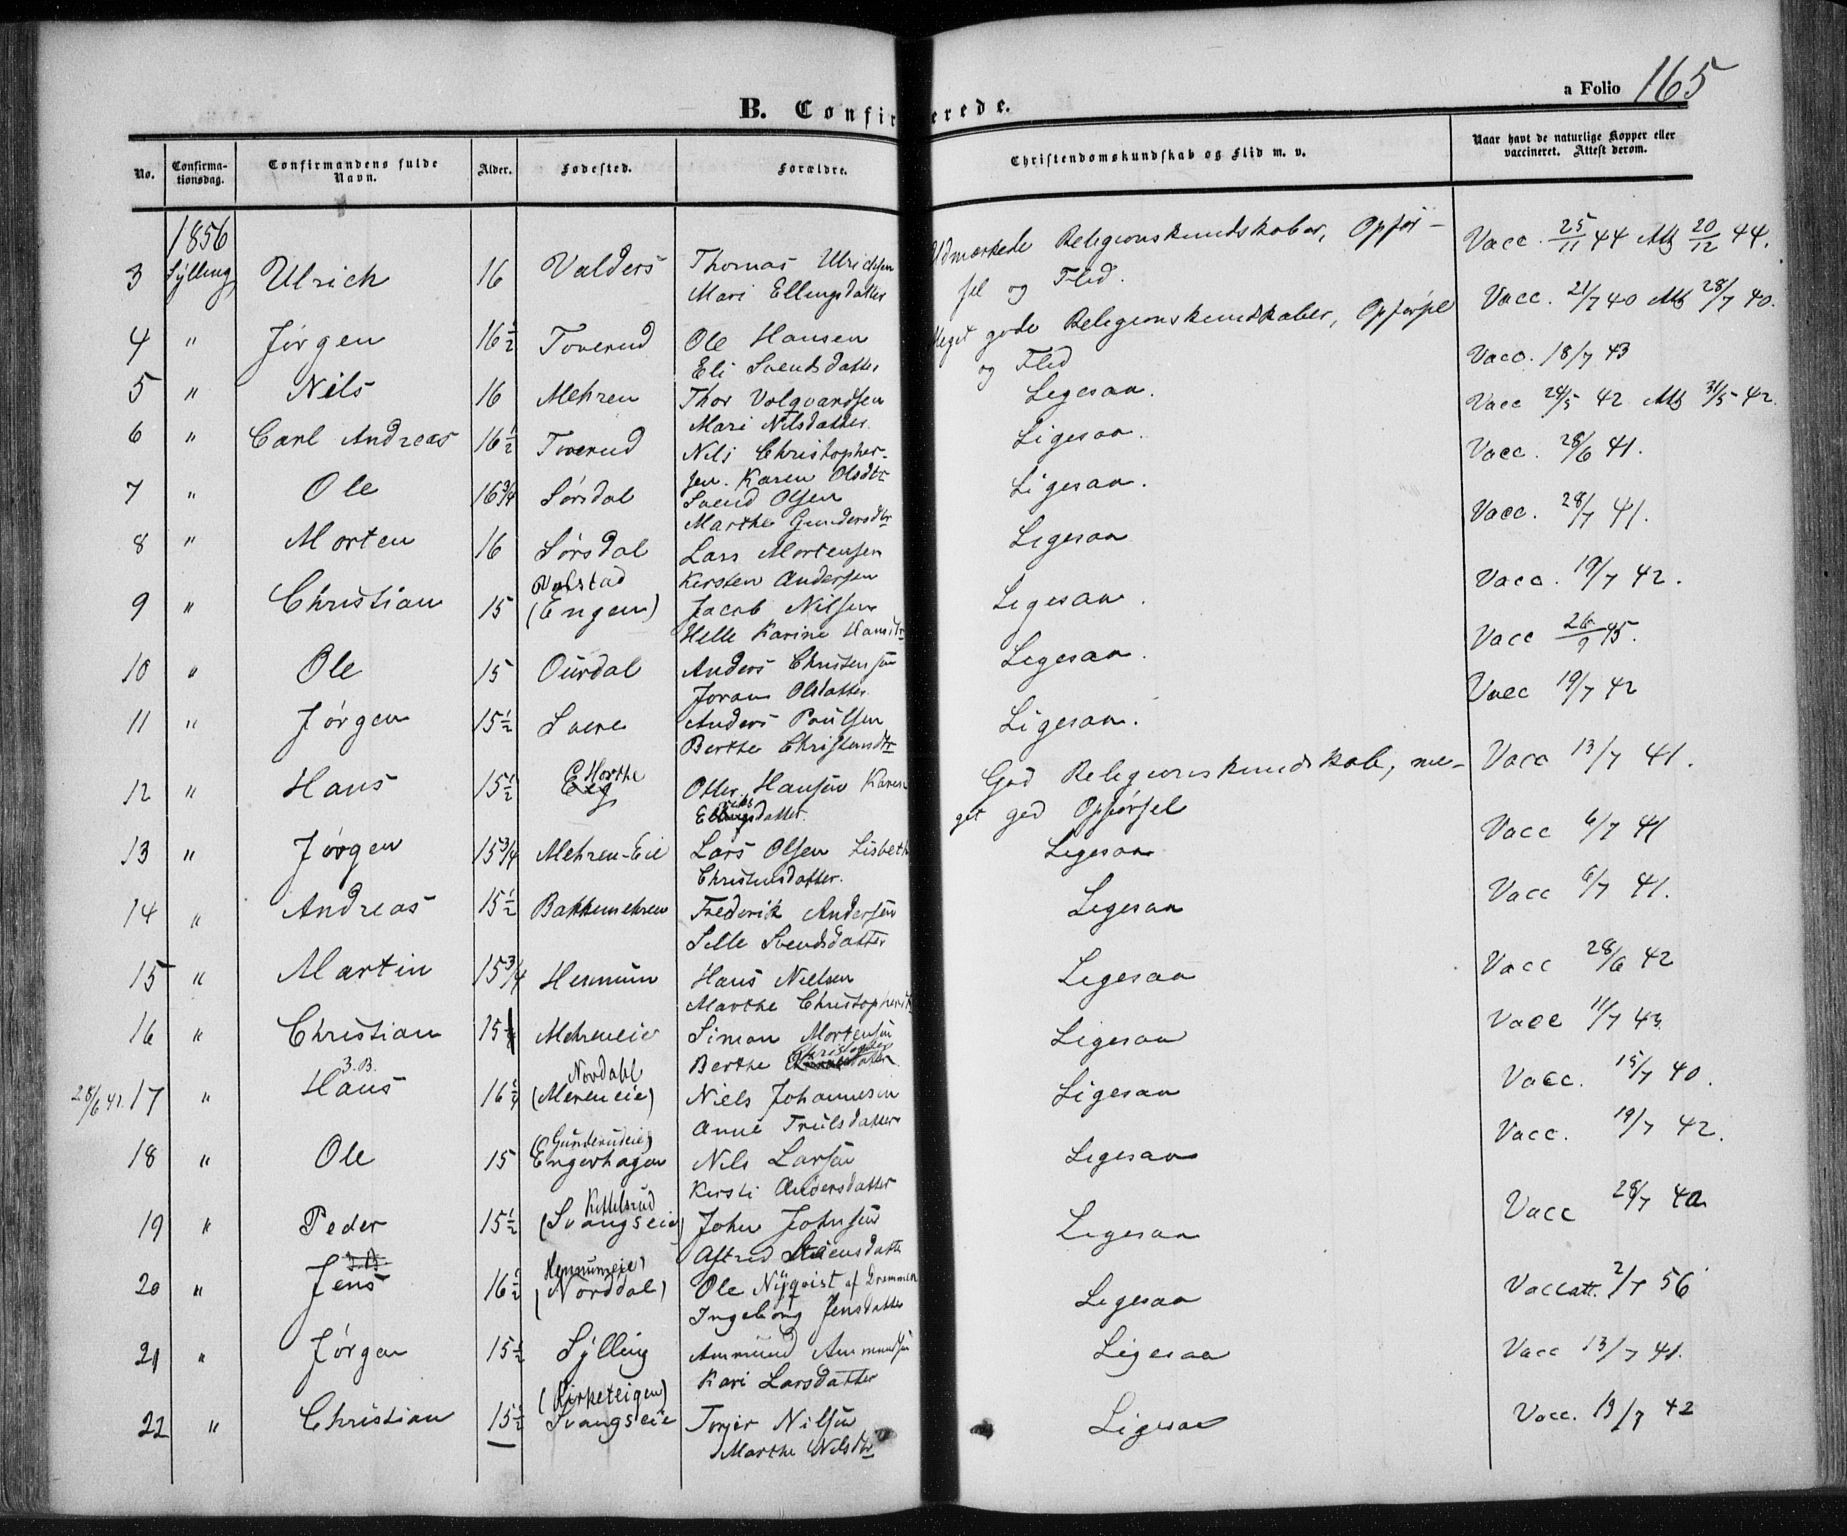 a Folio 165
B. Confirmerede.
No. Confirmationsdag. Confirmandens fulde Navn. Alder. Fødested. Forældre. Christendomskundskab og Flid m. v. Naar havt de naturlige Kopper eller vaccineret. Attest derom.
1856
3 Sylling Ulrich 16 Valders Thomas Ulrichsen Mari Ellingsdatter Udmærkede Religionskundskaber, Opførsel og Flid. Vacc. 25/11 44 Att 20/12 44.
4 " Jørgen 16½ Toverud Ole Hansen Eli Svendsdatter Meget gode Religionskundskaber, Opførsel og Flid Vacc. 21/7 40 Att 28/7 40.
5 " Nils 16 Mehren Thor Volqvardsen Mari Nilsdatter Ligesaa. Vacc. 18/7 43
6 " Carl Andreas 16½ Toverud Nils Christophersen. Karen Olsdtr Ligesaa. Vacc 24/5 42 Att 31/5 42.
7 " Ole 16¾ Sørsdal Svend Olsen Marthe Gundersdtr Ligesaa. Vacc. 28/6 41.
8 " Morten 16 Sørsdal Lars Mortensen Kersten Andersen Ligesaa Vacc. 28/7 41.
9 " Christian 15 Valstad (Engen) Jacob Nilsen Helle Karine Hansdtr Ligesaa. Vacc. 19/7 42.
10 " Ole 15 Ourdal Anders Christensen Joran Olsdatter Ligesaa. Vacc 26/9 45.
11 " Jørgen 15½ Svere Anders Poulsen Berthe Christensdtr Ligesaa. Vacc 19/7 42
12 " Hans 15½ Horthe Eeg Otter Hansen Karen Ellingsdatter. God Religionskundskab, meget god Opførsel Vacc 13/7 41.
13 " Jørgen 15¾ Mehren-Eie Lars Olsen Lisbeth Christensdatter. Ligesaa Vacc 6/7 41
14 " Andreas 15½ Bakkemehren Frederik Andersen Sille Svendsdatter Ligesaa Vacc 6/7 41.
15 " Martin 15¾ Hennum Hans Nielsen Marthe Christophersd Ligesaa Vacc 28/6 42
16 " Christian 15 Mehreneie Simon Mortensen Berthe Christophersdatter Ligesaa Vacc 11/7 43
28/6 41. 17 " 3.B. Hans 16½ Nordahl (Mereneie) Niels Johannesen Anne Trulsdatter Ligesaa Vacc. 15/7 40.
18 " Ole 15 Gunderudeie Engerhagen Nils Larsen Kersti Andersdatter Ligesaa Vacc. 19/7 42.
19 " Peder 15½ Kittelsrud (Svangseie) John Johnsen Astrid Steensdatter Ligesaa Vacc 28/7 42
20 " 3.B. Jens 16½ Hennumseie (Norddal) Ole Nyqvist af Drammen Ingeborg Jensdatter Ligesaa Vacc att. 2/7 56
21 " Jørgen 15½ Sylling Ammund Ammundsen Kari Larsdatter Ligesaa Vacc 13/7 41.
22 " Christian 15½ (Kirketeigen) Svangseie Torjer Nilsen Marthe Nilsdtr Ligesaa Vacc. 19/7 42